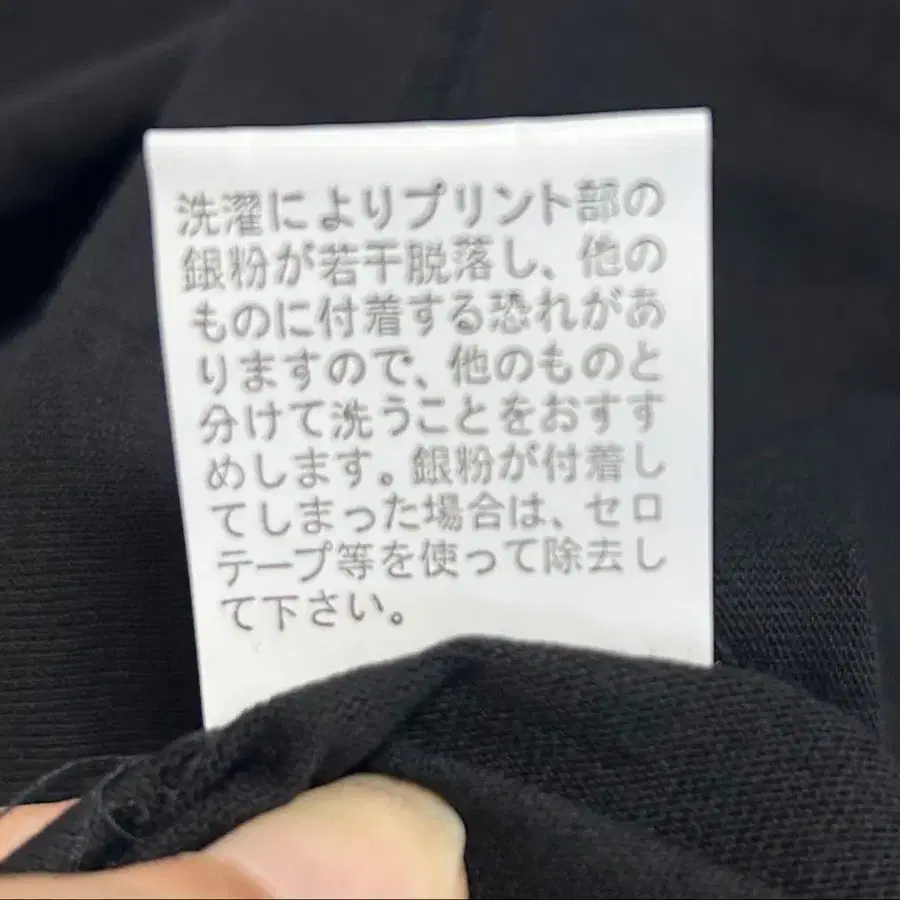 洗濯によりプリント部の
銀粉が若干脱落し、他の
ものに付着する恐れがあ
りますので、他のものと
分けて洗うことをおすす
めします。銀粉が付着し
てしまった場合は、セロ
テープ等を使って除去し
て下さい。